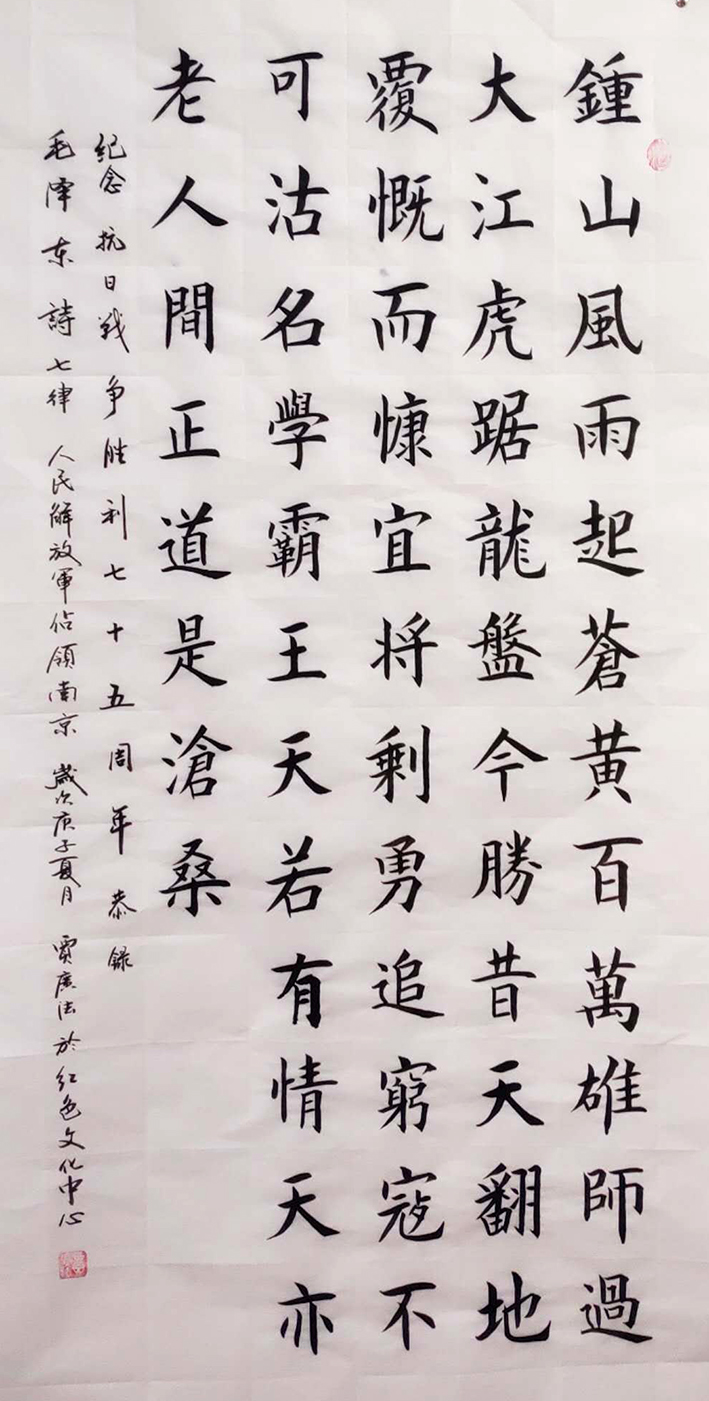 鍾山風雨起蒼黄百萬雄師過
大江虎踞龍盤今勝昔天翻地
覆慨而慷宜将剩勇追窮寇不
可沽名學霸王天若有情天亦
老人間正道是滄桑
纪念抗日战争胜利七十五周年恭録
毛泽东詩七律 人民解放軍佔領南京 歲次庚子夏月 贾广法於红色文化中心